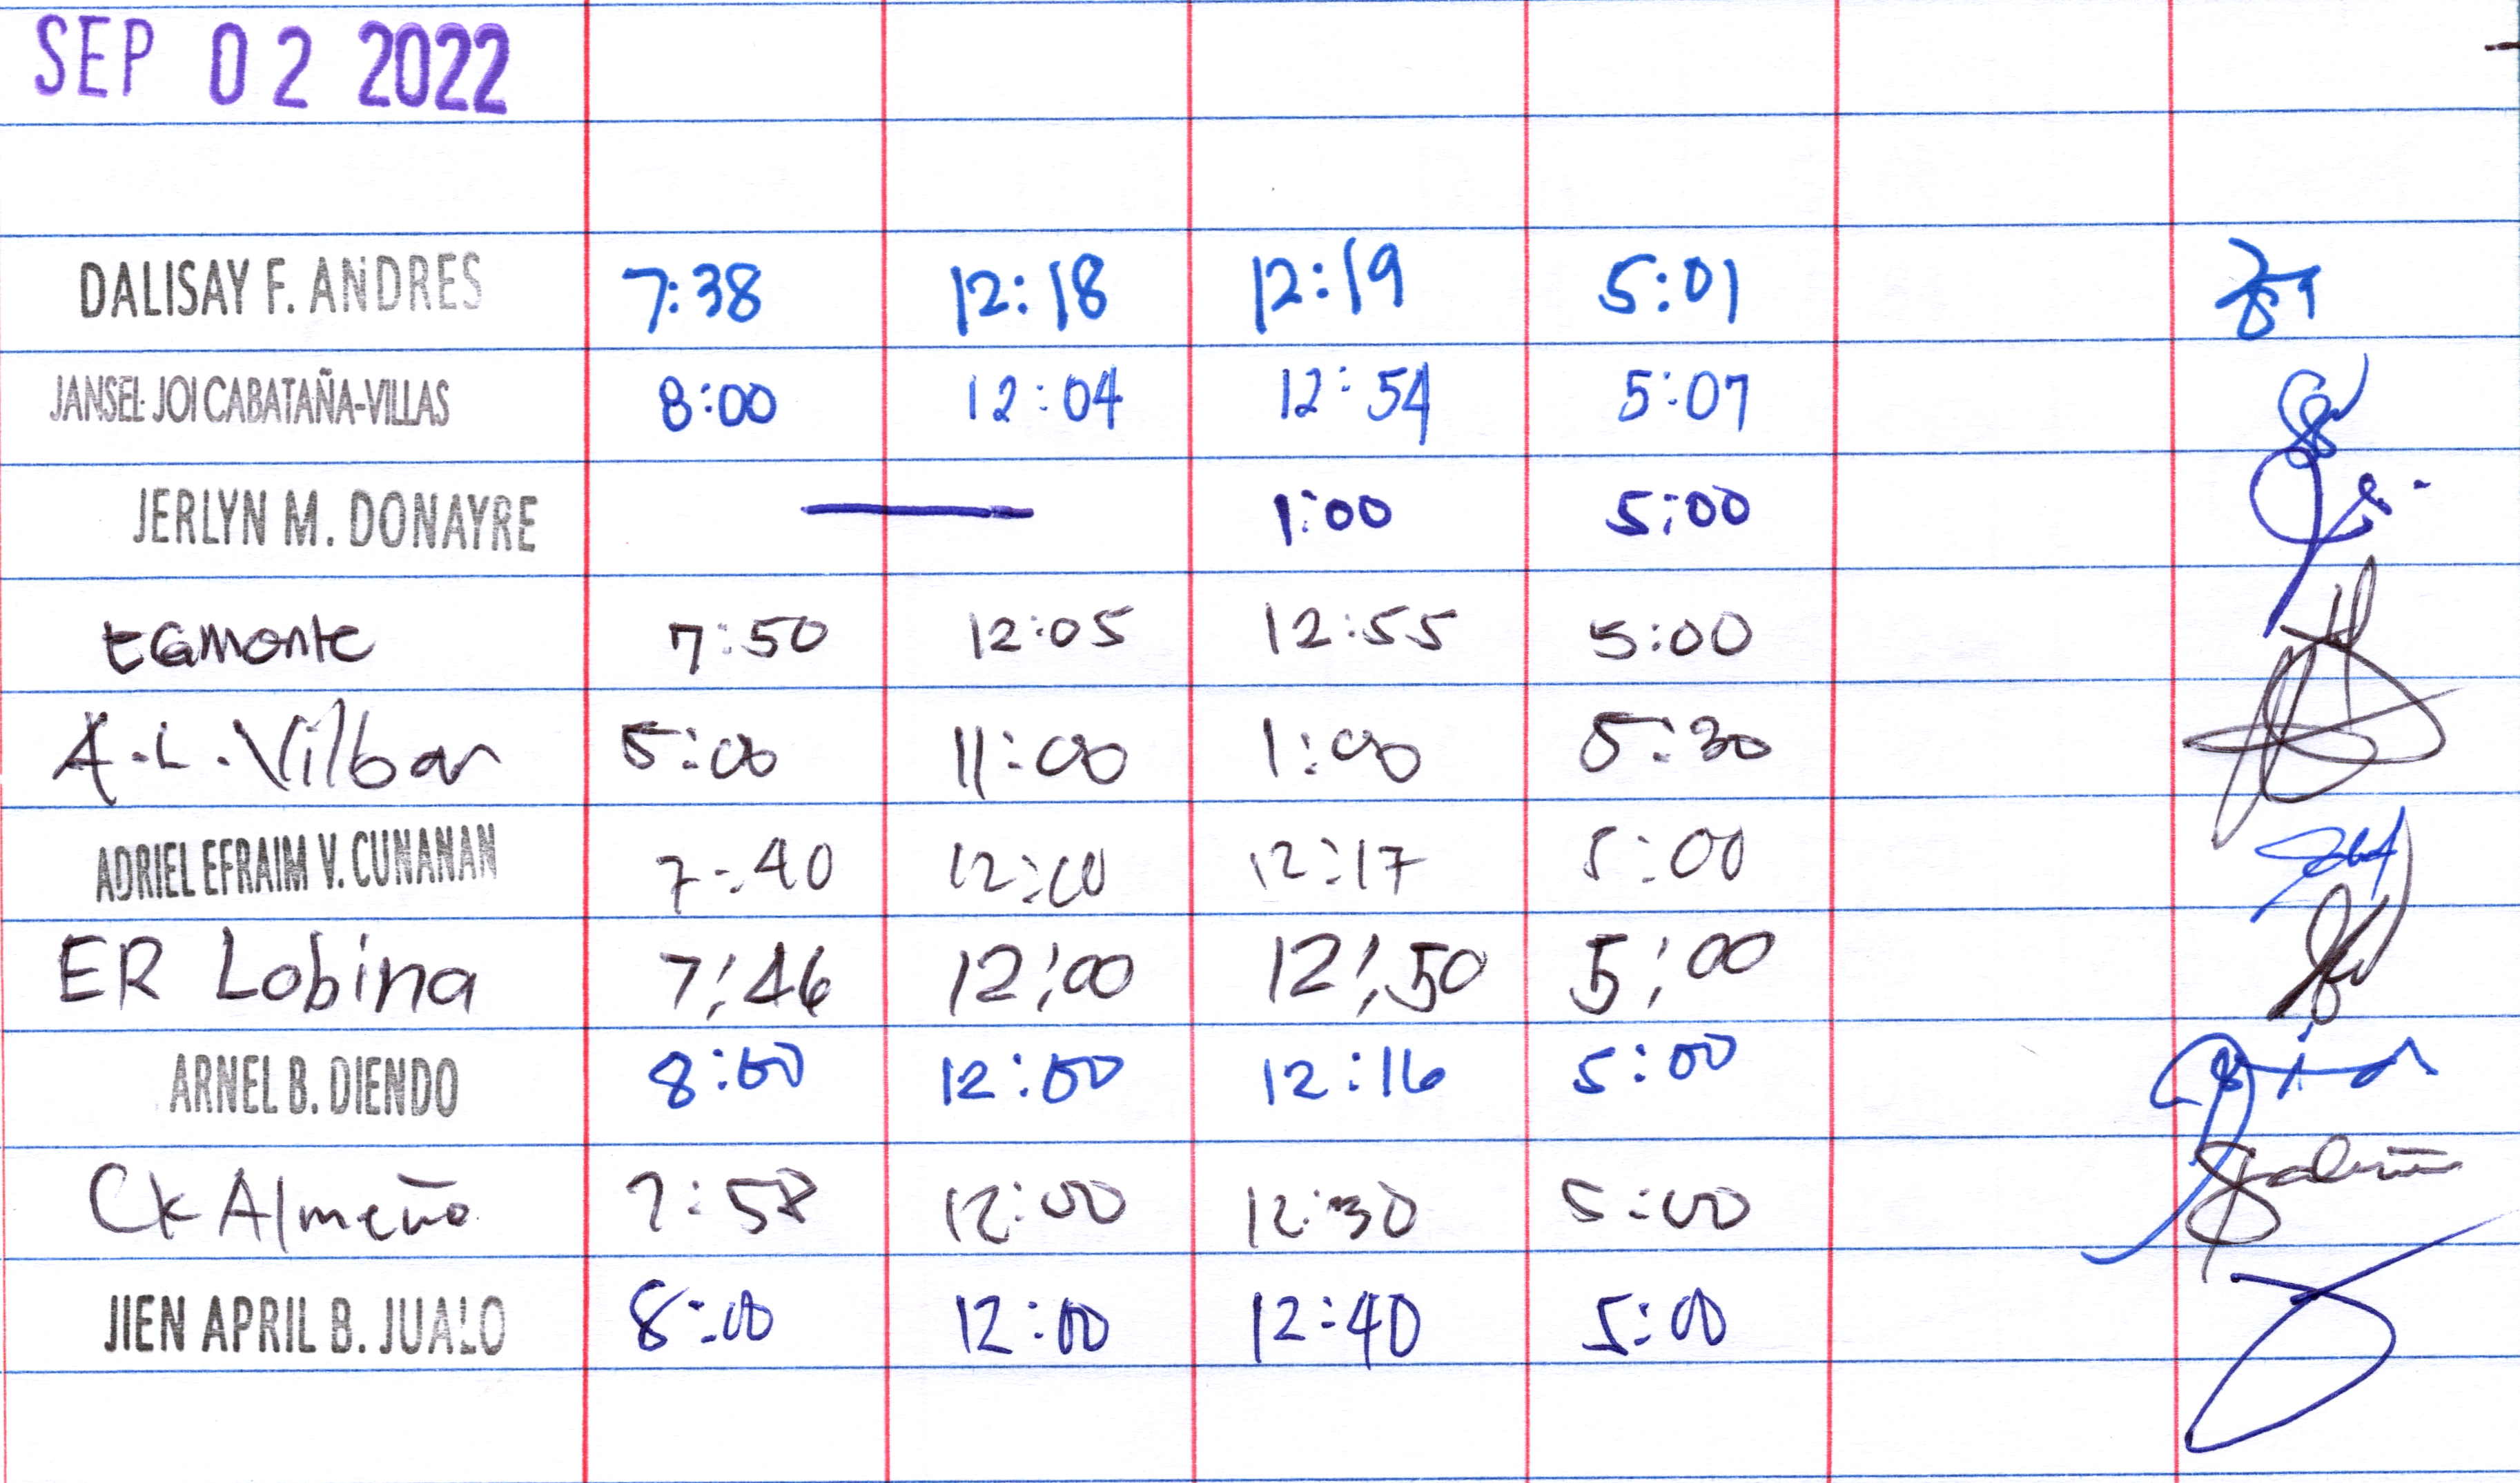 SEP 02 2022
DALISAY F. ANDRES 7:38 12:18 12:19 5:01
JANSEL JOI CABATAÑA-VILLAS 8:00 12:04 12:54 5:07
JERLYN M. DONAYRE — 1:00 5:00
EGMonte 7:50 12:05 12:55 5:00
A.L. Vilbar 5:00 11:00 1:00 5:30
ADRIEL EFRAIM V. CUNANAN 7:40 12:10 12:17 5:00
ER Lobina 7:46 12:00 12:50 5:00
ARNEL B. DIENDO 8:00 12:00 12:16 5:00
CK Almeño 7:58 12:00 12:30 5:00
JIEN APRIL B. JUALO 8:00 12:00 12:40 5:00